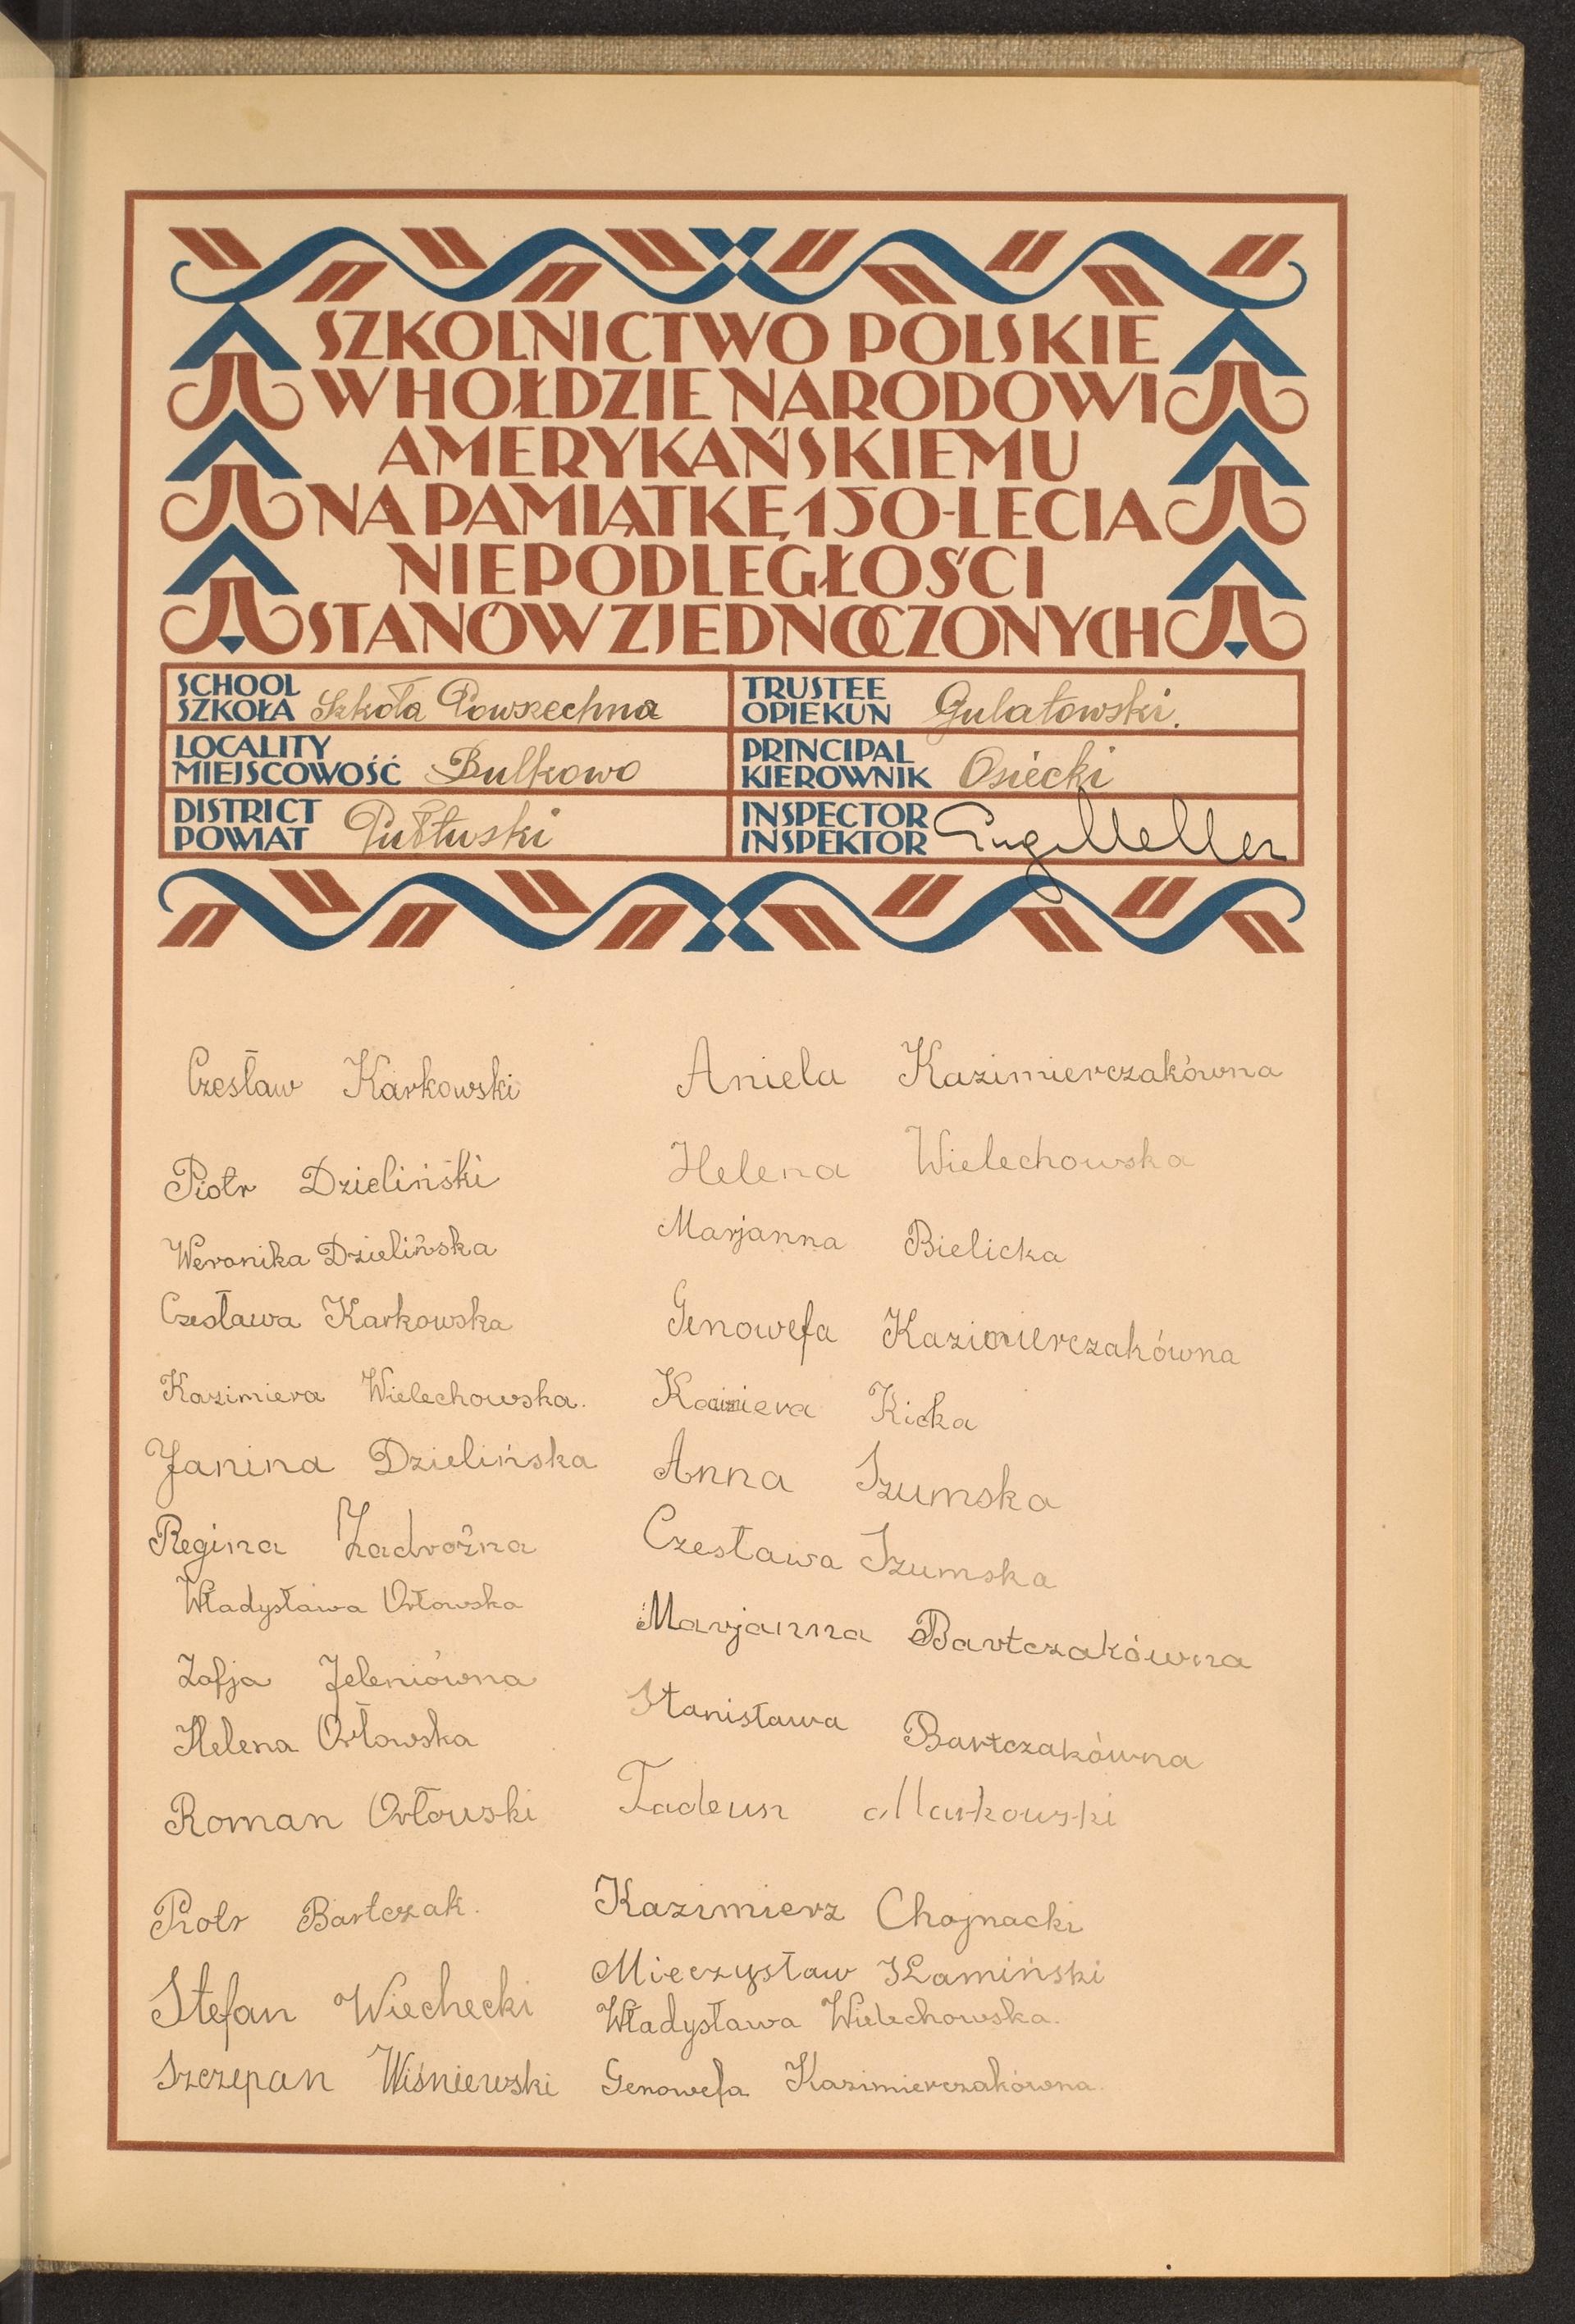 SZKOLNICTWO POLSKIE
W HOŁDZIE NARODOWI
AMERYKAŃSKIEMU
NA PAMIĄTKĘ 150-LECIA
NIEPODLEGŁOŚCI
STANÓW ZJEDNOCZONYCH
SCHOOL
SZKOŁA Szkoła Powszechna
LOCALITY
MIEJSCOWOŚĆ Bulkowo
DISTRICT
POWIAT Pułtuski
TRUSTEE
OPIEKUN Gulatowski.
PRINCIPAL
KIEROWNIK Osiecki
INSPECTOR
INSPEKTOR
Czesław Karkowski
Piotr Dzieliński
Weronika Dzielińska
Czesława Karkowska
Kazimiera Wielechowska.
Janina Dzielińska
Regina Zadrożna
Władysława Orłowska
Zofja Jeleniówna
Helena Orłowska
Roman Orłowski
Piotr Bartczak.
Stefan Wiechecki
Szczepan Wiśniewski
Aniela Kazimierczakówna
Helena Wielechowska
Marjanna Bielicka
Genowefa Kazimierczakówna
Kicka
Anna Szumska
Czesława Szumska
Marjanna Bartczakówna
Stanisława Bartczakówna
Tadeusz Markowski
Kazimierz Chojnacki
Mieczysław Kamiński
Władysława Wielechowska.
Genowefa Kazimierczakówna.